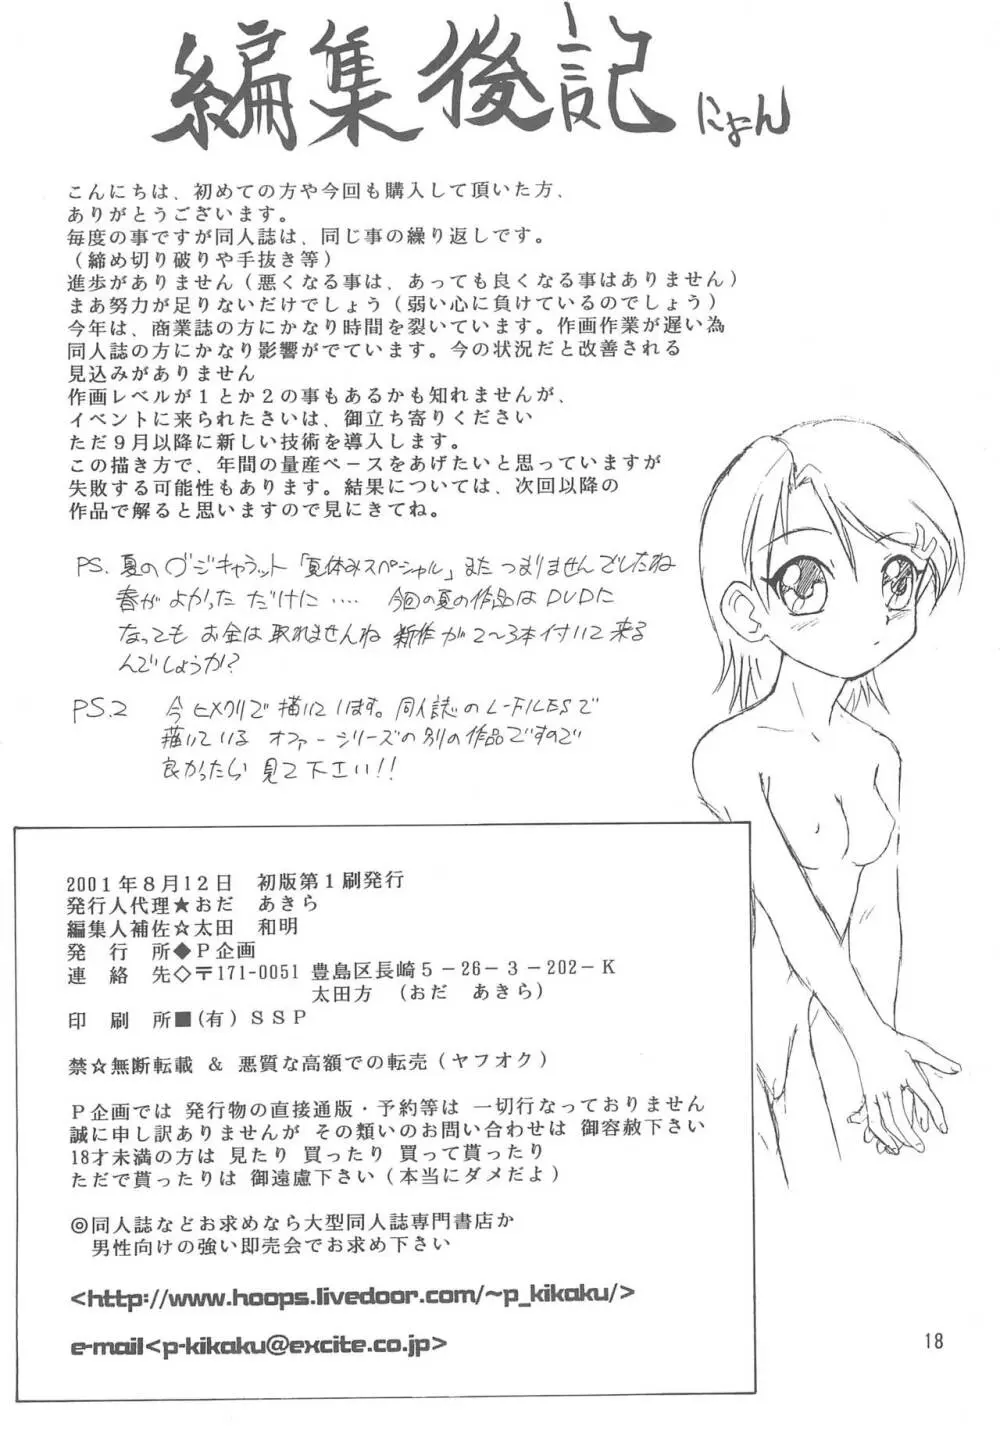 編集後記 にょん
こんにちは、初めての方や今回も購入して頂いた方、
ありがとうございます。
毎度の事ですが同人誌は、同じ事の繰り返しです。
（締め切り破りや手抜き等）
進歩がありません（悪くなる事は、あっても良くなる事はありません）
まあ努力が足りないだけでしょう（弱い心に負けているのでしょう）
今年は、商業誌の方にかなり時間を裂いています。作画作業が遅い為
同人誌の方にかなり影響がでています。今の状況だと改善される
見込みがありません
作画レベルが１とか２の事もあるかも知れませんが、
イベントに来られたさいは、御立ち寄りください
ただ９月以降に新しい技術を導入します。
この描き方で、年間の量産ペースをあげたいと思っていますが
失敗する可能性もあります。結果については、次回以降の
作品で解ると思いますので見にきてね。
PS. 夏のデジキャラット「夏休みスペシャル」またつまりませんでしたね
春がよかっただけに‥‥ 今回の夏の作品はDVDに
なってもお金は取れませんね 新作が2〜3本付いて来る
んでしょうか?
PS.2 今ヒメクリで描いています。同人誌のL-FILESで
描いているオファーシリーズの別の作品ですので
良かったら見て下さい!!
2001年８月12日 初版第１刷発行
発行人代理★おだ あきら
編集人補佐☆太田 和明
発 行 所◆Ｐ企画
連 絡 先◇〒171-0051 豊島区長崎５－26－３－202－Ｋ
太田方 （おだ あきら）
印 刷 所■(有）ＳＳＰ
禁☆無断転載 ＆ 悪質な高額での転売（ヤフオク）
Ｐ企画では 発行物の直接通販・予約等は 一切行なっておりません
誠に申し訳ありませんが その類いのお問い合わせは 御容赦下さい
18才未満の方は 見たり 買ったり 買って貰ったり
ただで貰ったりは 御遠慮下さい（本当にダメだよ）
◎同人誌などお求めなら大型同人誌専門書店か
男性向けの強い即売会でお求め下さい
<http://www.hoops.livedoor.com/~p_kikaku/>
e-mail<p-kikaku@excite.co.jp>
18